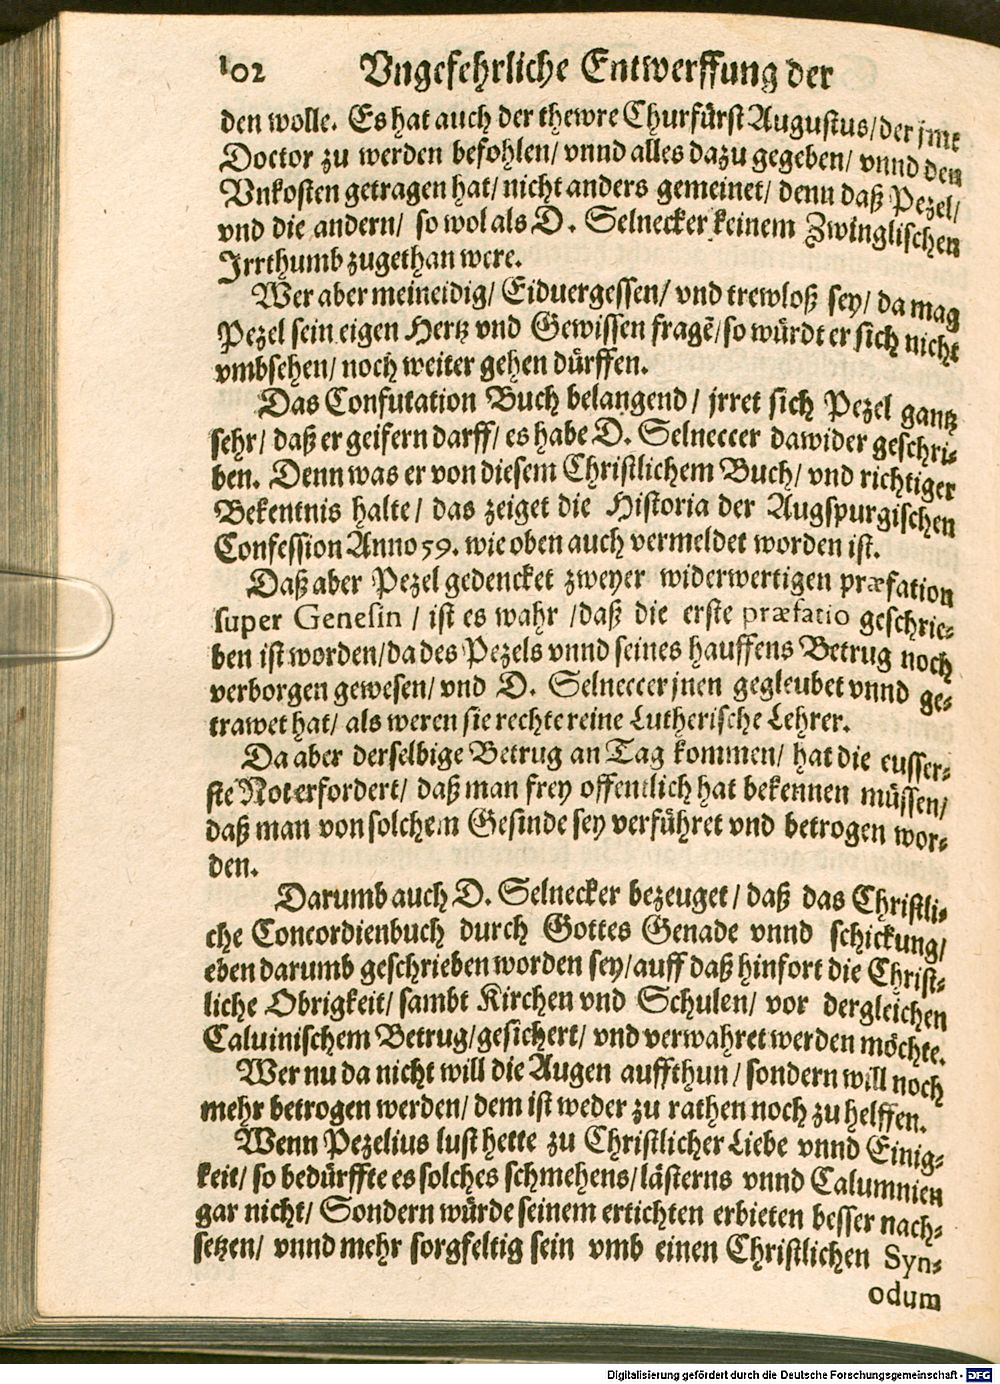 102 Vngefehrliche Entwerffung der
den wolle. Es hat auch der thewre Churfürst Augustus/ der jme
Doctor zu werden befohlen/ vnnd alles dazu gegeben/ vnnd den
Vnkosten getragen hat/ nicht anders gemeinet/ denn daß Pezel/
vnd die andern/ so wol als D. Selnecker keinem Zwinglischen
Irrthumb zugethan were.
Wer aber meineidig/ Eiduergessen/ vnd trewloß sey/ da mag
Pezel sein eigen Hertz vnd Gewissen fragẽ/ so würdt er sich nicht
vmbsehen/ noch weiter gehen dürffen.
Das Confutation Buch belangend/ jrret sich Pezel gantz
sehr/ daß er geifern darff/ es habe D. Selneccer dawider geschri-
ben. Denn was er von diesem Christlichem Buch/ vnd richtiger
Bekentnis halte/ das zeiget die Historia der Augspurgischen
Confession Anno 59. wie oben auch vermeldet worden ist.
Daß aber Pezel gedencket zweyer widerwertigen præfation
super Genesin / ist es wahr / daß die erste præfatio geschrie-
ben ist worden/ da des Pezels vnnd seines hauffens Betrug noch
verborgen gewesen/ vnd D. Selneccer jnen gegleubet vnnd ge-
trawet hat/ als weren sie rechte reine Lutherische Lehrer.
Da aber derselbige Betrug an Tag kommen/ hat die eusser-
ste Not erfordert/ daß man frey offentlich hat bekennen müssen/
daß man von solchem Gesinde sey verführet vnd betrogen wor-
den.
Darumb auch D. Selnecker bezeuget/ daß das Christli-
che Concordienbuch durch Gottes Genade vnnd schickung/
eben darumb geschrieben worden sey/ auff daß hinfort die Christ-
liche Obrigkeit/ sambt Kirchen vnd Schulen/ vor dergleichen
Caluinischem Betrug/ gesichert/ vnd verwahret werden möchte.
Wer nu da nicht will die Augen auffthun/ sondern will noch
mehr betrogen werden/ dem ist weder zu rathen noch zu helffen.
Wenn Pezelius lust hette zu Christlicher Liebe vnnd Einig-
keit/ so bedürffte es solches schmehens/ lästerns vnnd Calumnien
gar nicht/ Sondern würde seinem ertichten erbieten besser nach-
setzen/ vnnd mehr sorgfeltig sein vmb einen Christlichen Syn-
odum
Digitalisierung gefördert durch die Deutsche Forschungsgemeinschaft - DFG